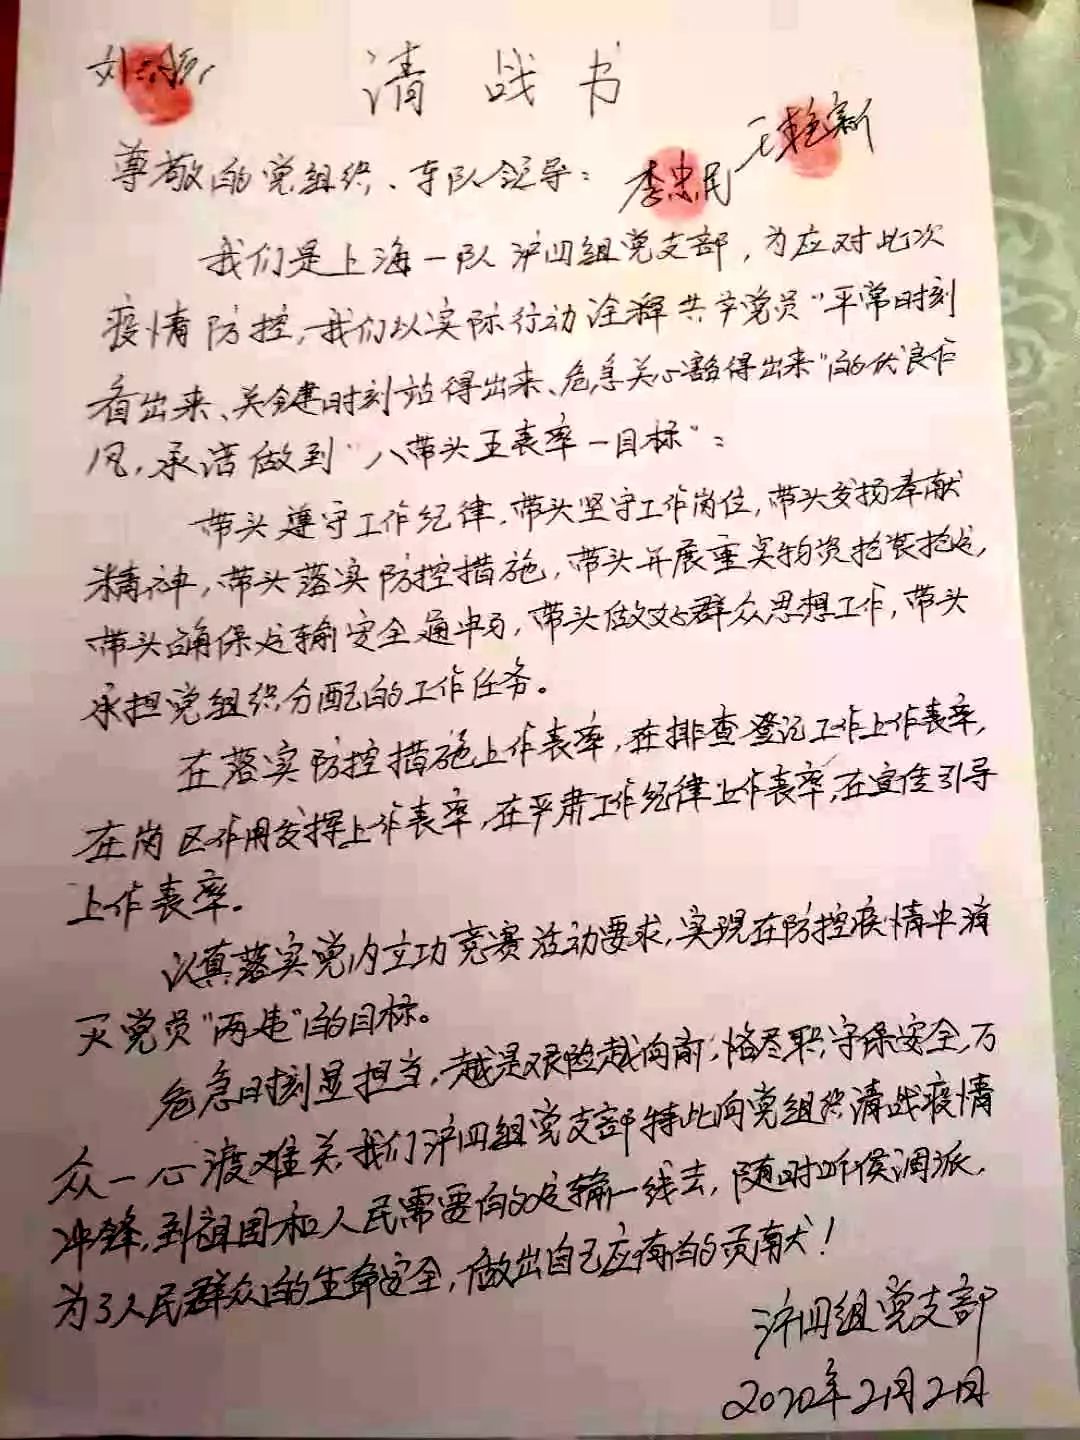 请战书
刘
王艳新
李忠民
尊敬的党组织、车队领导：
我们是上海一队沪四组党支部，为应对此次
疫情防控，我们以实际行动诠释共产党员“平常时刻
看出来、关键时刻站得出来、危急关心豁得出来”的优良作
风，承诺做到“八带头五表率一目标”：
带头遵守工作纪律，带头坚守工作岗位，带头发扬奉献
精神，带头落实防控措施，带头开展重点物资抢装抢运，
带头确保运输安全通畅，带头做好群众思想工作，带头
承担党组织分配的工作任务。
在落实防控措施上作表率，在排查登记工作上作表率，
在岗区作用发挥上作表率，在严肃工作纪律上作表率，在宣传引导
上作表率。
认真落实党内立功竞赛活动要求，实现在防控疫情中消
灭党员“两违”的目标。
危急时刻显担当，越是艰险越向前，恪尽职守保安全，万
众一心渡难关，我们沪四组党支部特此向党组织请战疫情
冲锋，到祖国和人民需要的运输一线去，随时听候调派，
为了人民群众的生命安全，做出自己应有的贡献！
沪四组党支部
2020年2月2日